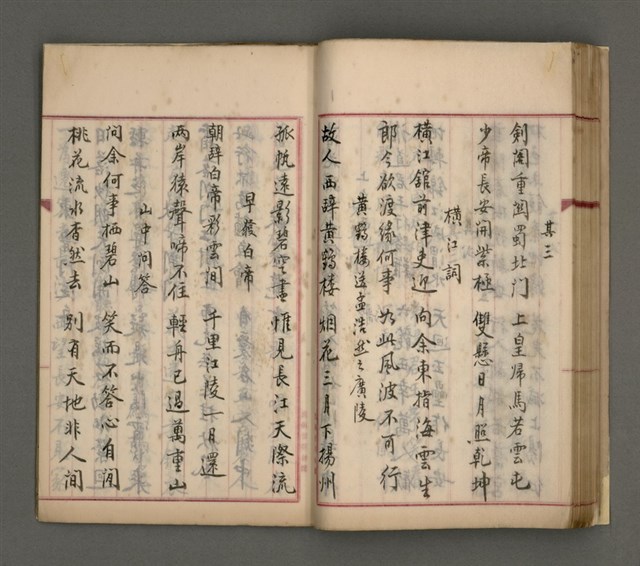 其三
劍閣重関蜀北門 上皇歸馬若雲屯
少帝長安開紫極 雙懸日月照乾坤
橫江詞
橫江館前津吏迎 向余東指海雲生
郎今欲渡緣何事 如此風波不可行
黃鶴樓送孟浩然之廣陵
故人西辞黃鶴樓 烟花三月下揚州
孤帆遠影碧空盡 惟見長江天際流
早發白帝
朝辞白帝彩雲间 千里江陵一日還
両岸猿聲啼不住 輕舟已過萬重山
山中问答
问余何事栖碧山 笑而不答心自閒
桃花流水杳然去 別有天地非人间